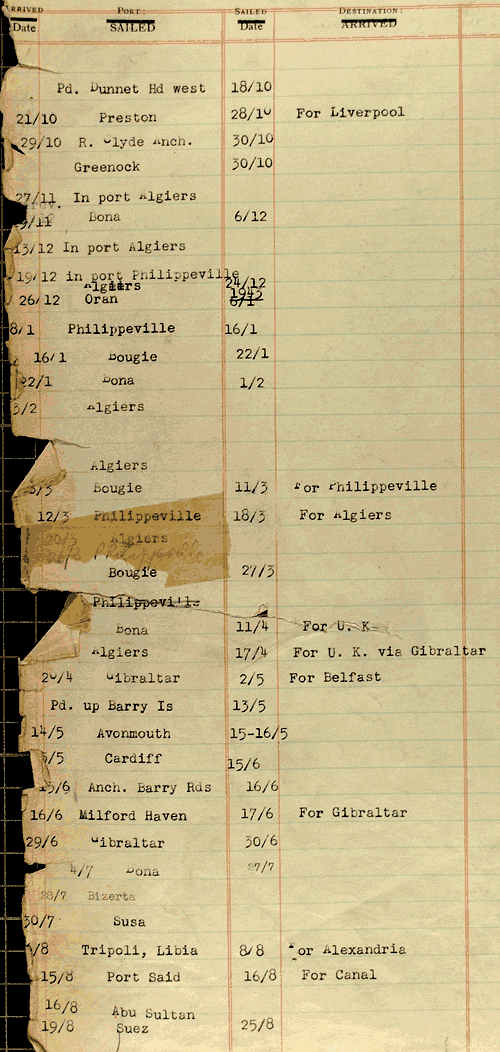 ARRIVED PORT: SAILED DESTINATION:
Date SAILED Date ARRIVED
Pd. Dunnet Hd west 18/10
21/10 Preston 28/10 For Liverpool
29/10 R. Clyde Anch. 30/10
Greenock 30/10
27/11 In port Algiers
Bona 6/12
13/12 In port Algiers
19/12 in port Philippeville
Algiers 24/12
1943
26/12 Oran 6/1
8/1 Philippeville 16/1
16/1 Bougie 22/1
22/1 Bona 1/2
3/2 Algiers
Algiers
Bougie 11/3 For Philippeville
12/3 Philippeville 18/3 For Algiers
20/3 Algiers
Philippeville
Bougie 27/3
Philippeville
Bona 11/4 For U. K.
Algiers 17/4 For U. K. via Gibraltar
20/4 Gibraltar 2/5 For Belfast
Pd. up Barry Is 13/5
14/5 Avonmouth 15-16/5
Cardiff 15/6
15/6 Anch. Barry Rds 16/6
16/6 Milford Haven 17/6 For Gibraltar
29/6 Gibraltar 30/6
4/7 Bona 27/7
28/7 Bizerta
30/7 Susa
/8 Tripoli, Libia 8/8 For Alexandria
15/8 Port Said 16/8 For Canal
16/8 Abu Sultan
19/8 Suez 25/8